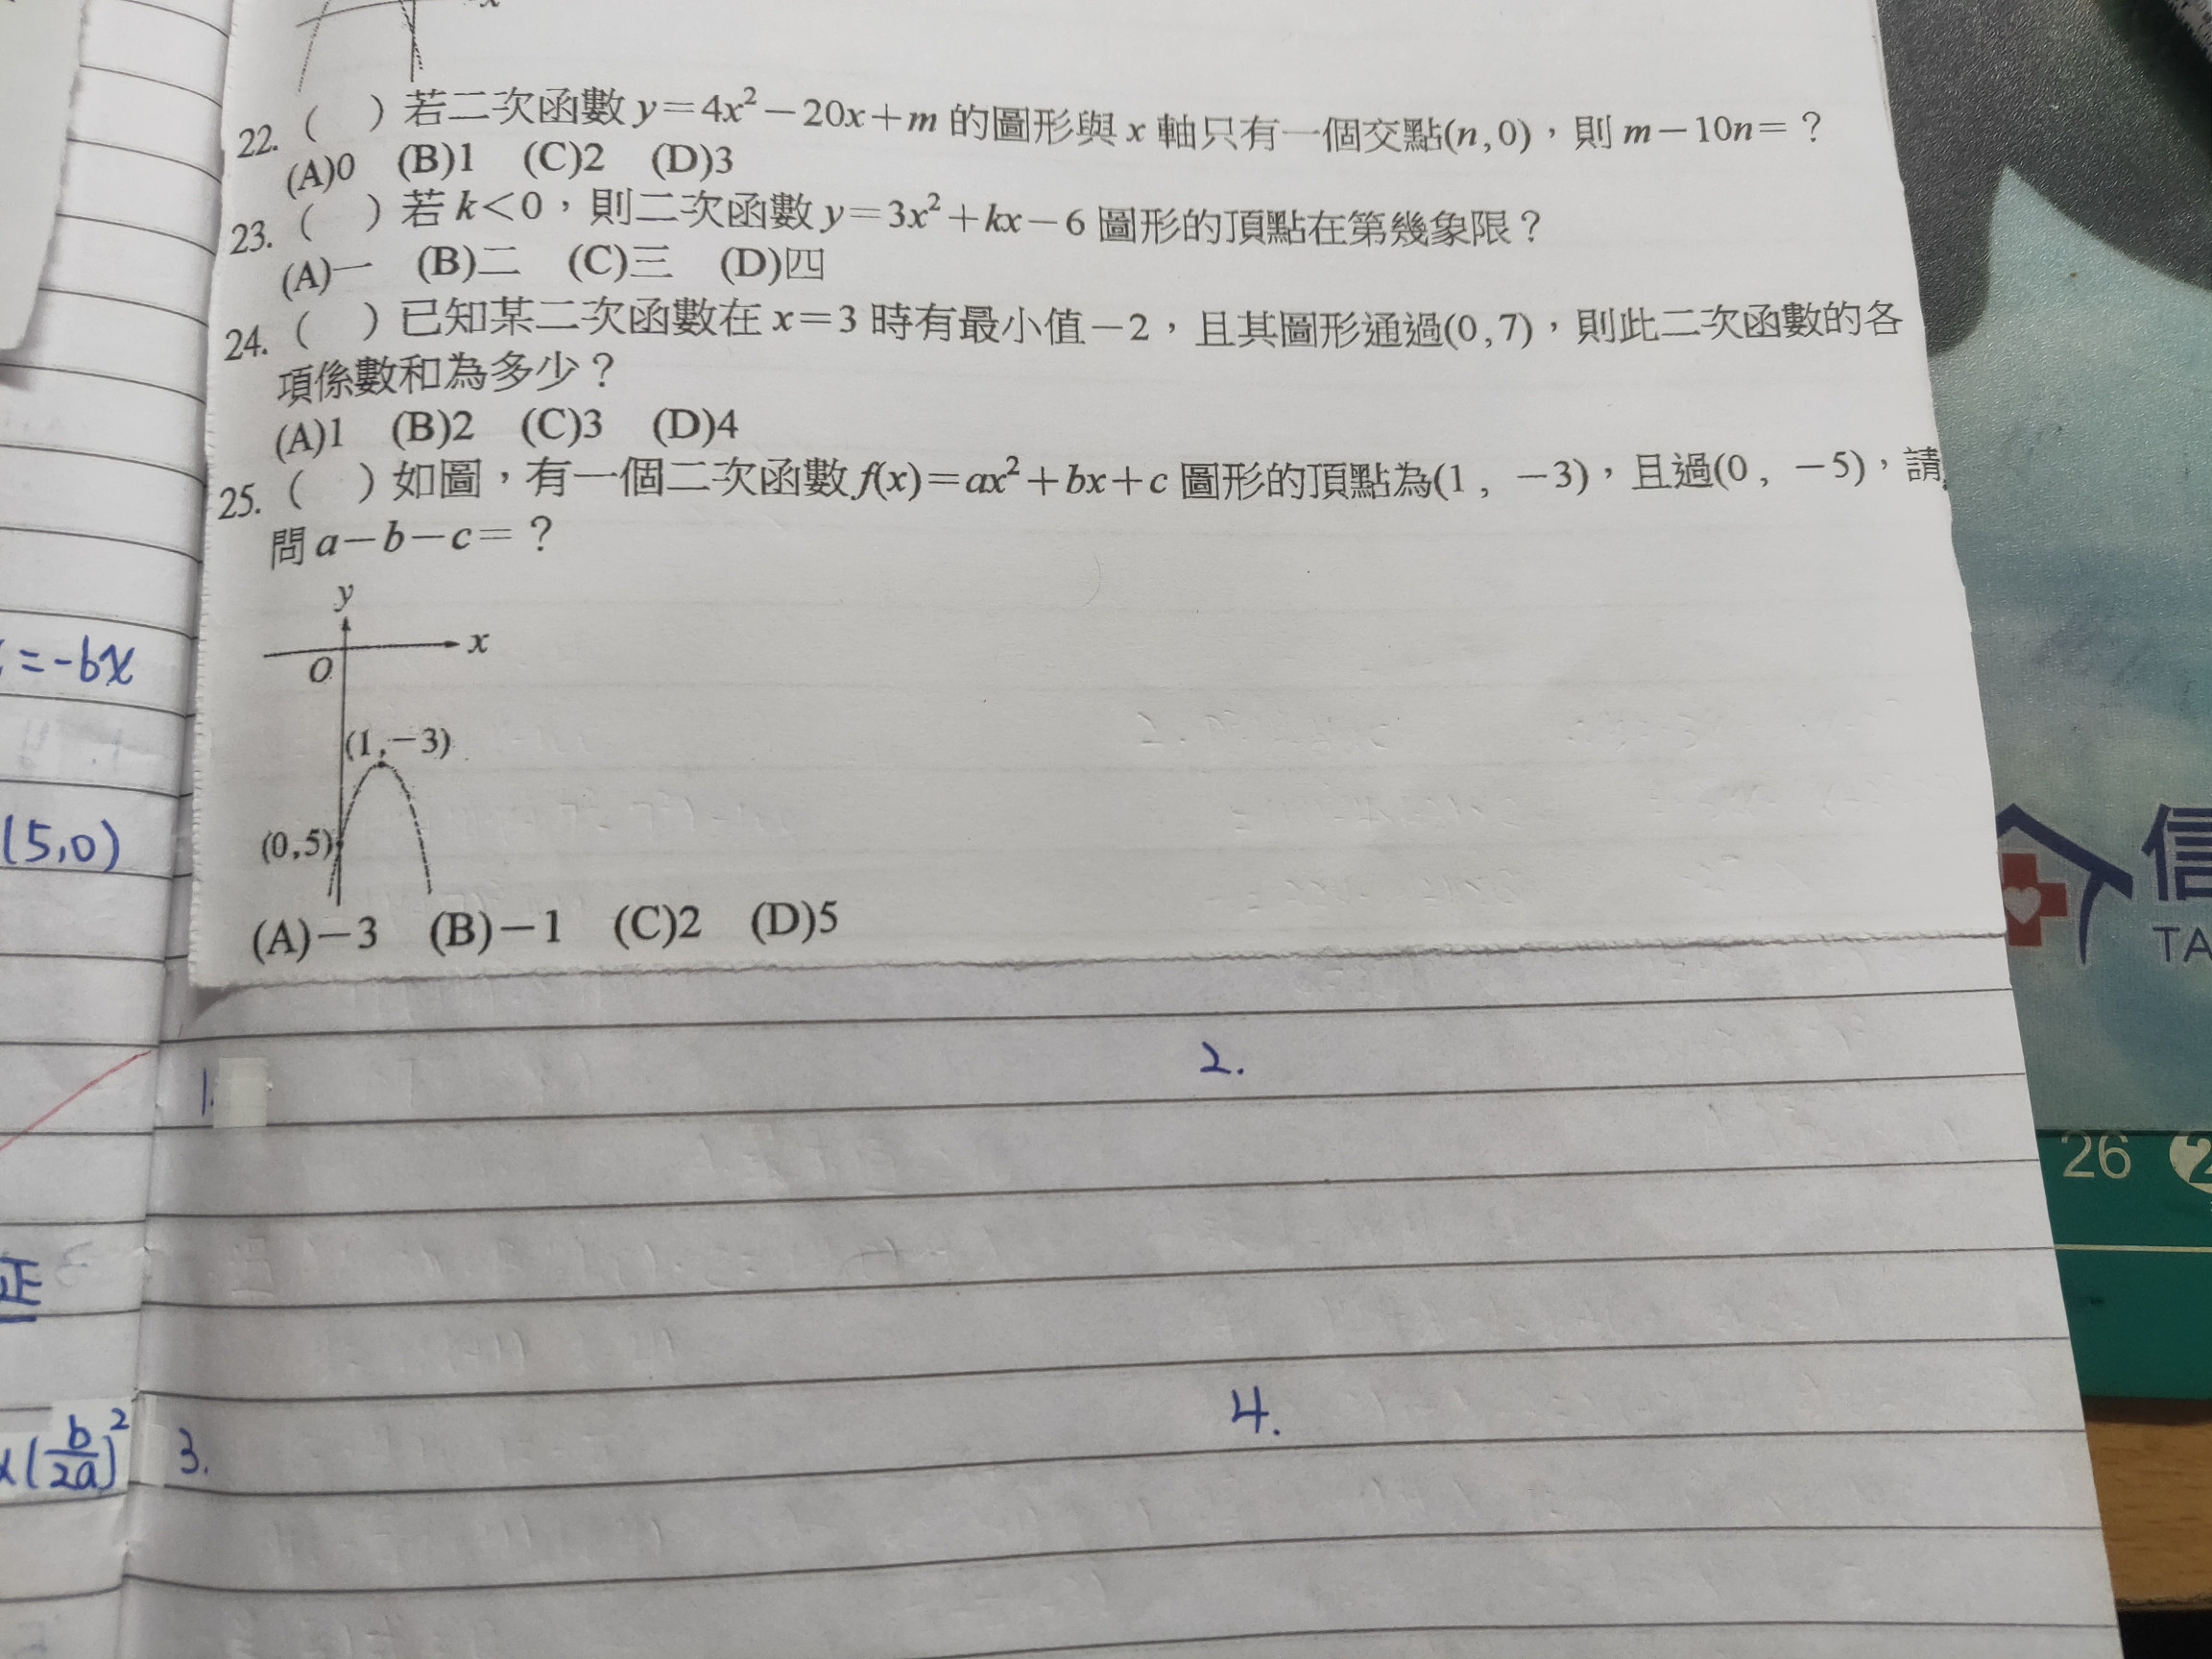 x
22. (   ) 若二次函數 y=4x²−20x+m 的圖形與 x 軸只有一個交點(n,0),則 m−10n=?
(A)0 (B)1 (C)2 (D)3
23. (   ) 若 k<0,則二次函數 y=3x²+kx−6 圖形的頂點在第幾象限?
(A)一 (B)二 (C)三 (D)四
24. (   ) 已知某二次函數在 x=3 時有最小值−2,且其圖形通過(0,7),則此二次函數的各
項係數和為多少?
(A)1 (B)2 (C)3 (D)4
25. (   ) 如圖,有一個二次函數 f(x)=ax²+bx+c 圖形的頂點為(1, −3),且過(0, −5),請
問 a−b−c=?
y
x
O
(1,−3)
(0,5)
(A)−3 (B)−1 (C)2 (D)5
=-6x
(5,0)
正
(b/2a)²
1.
2.
3.
4.
信
TA
26 2